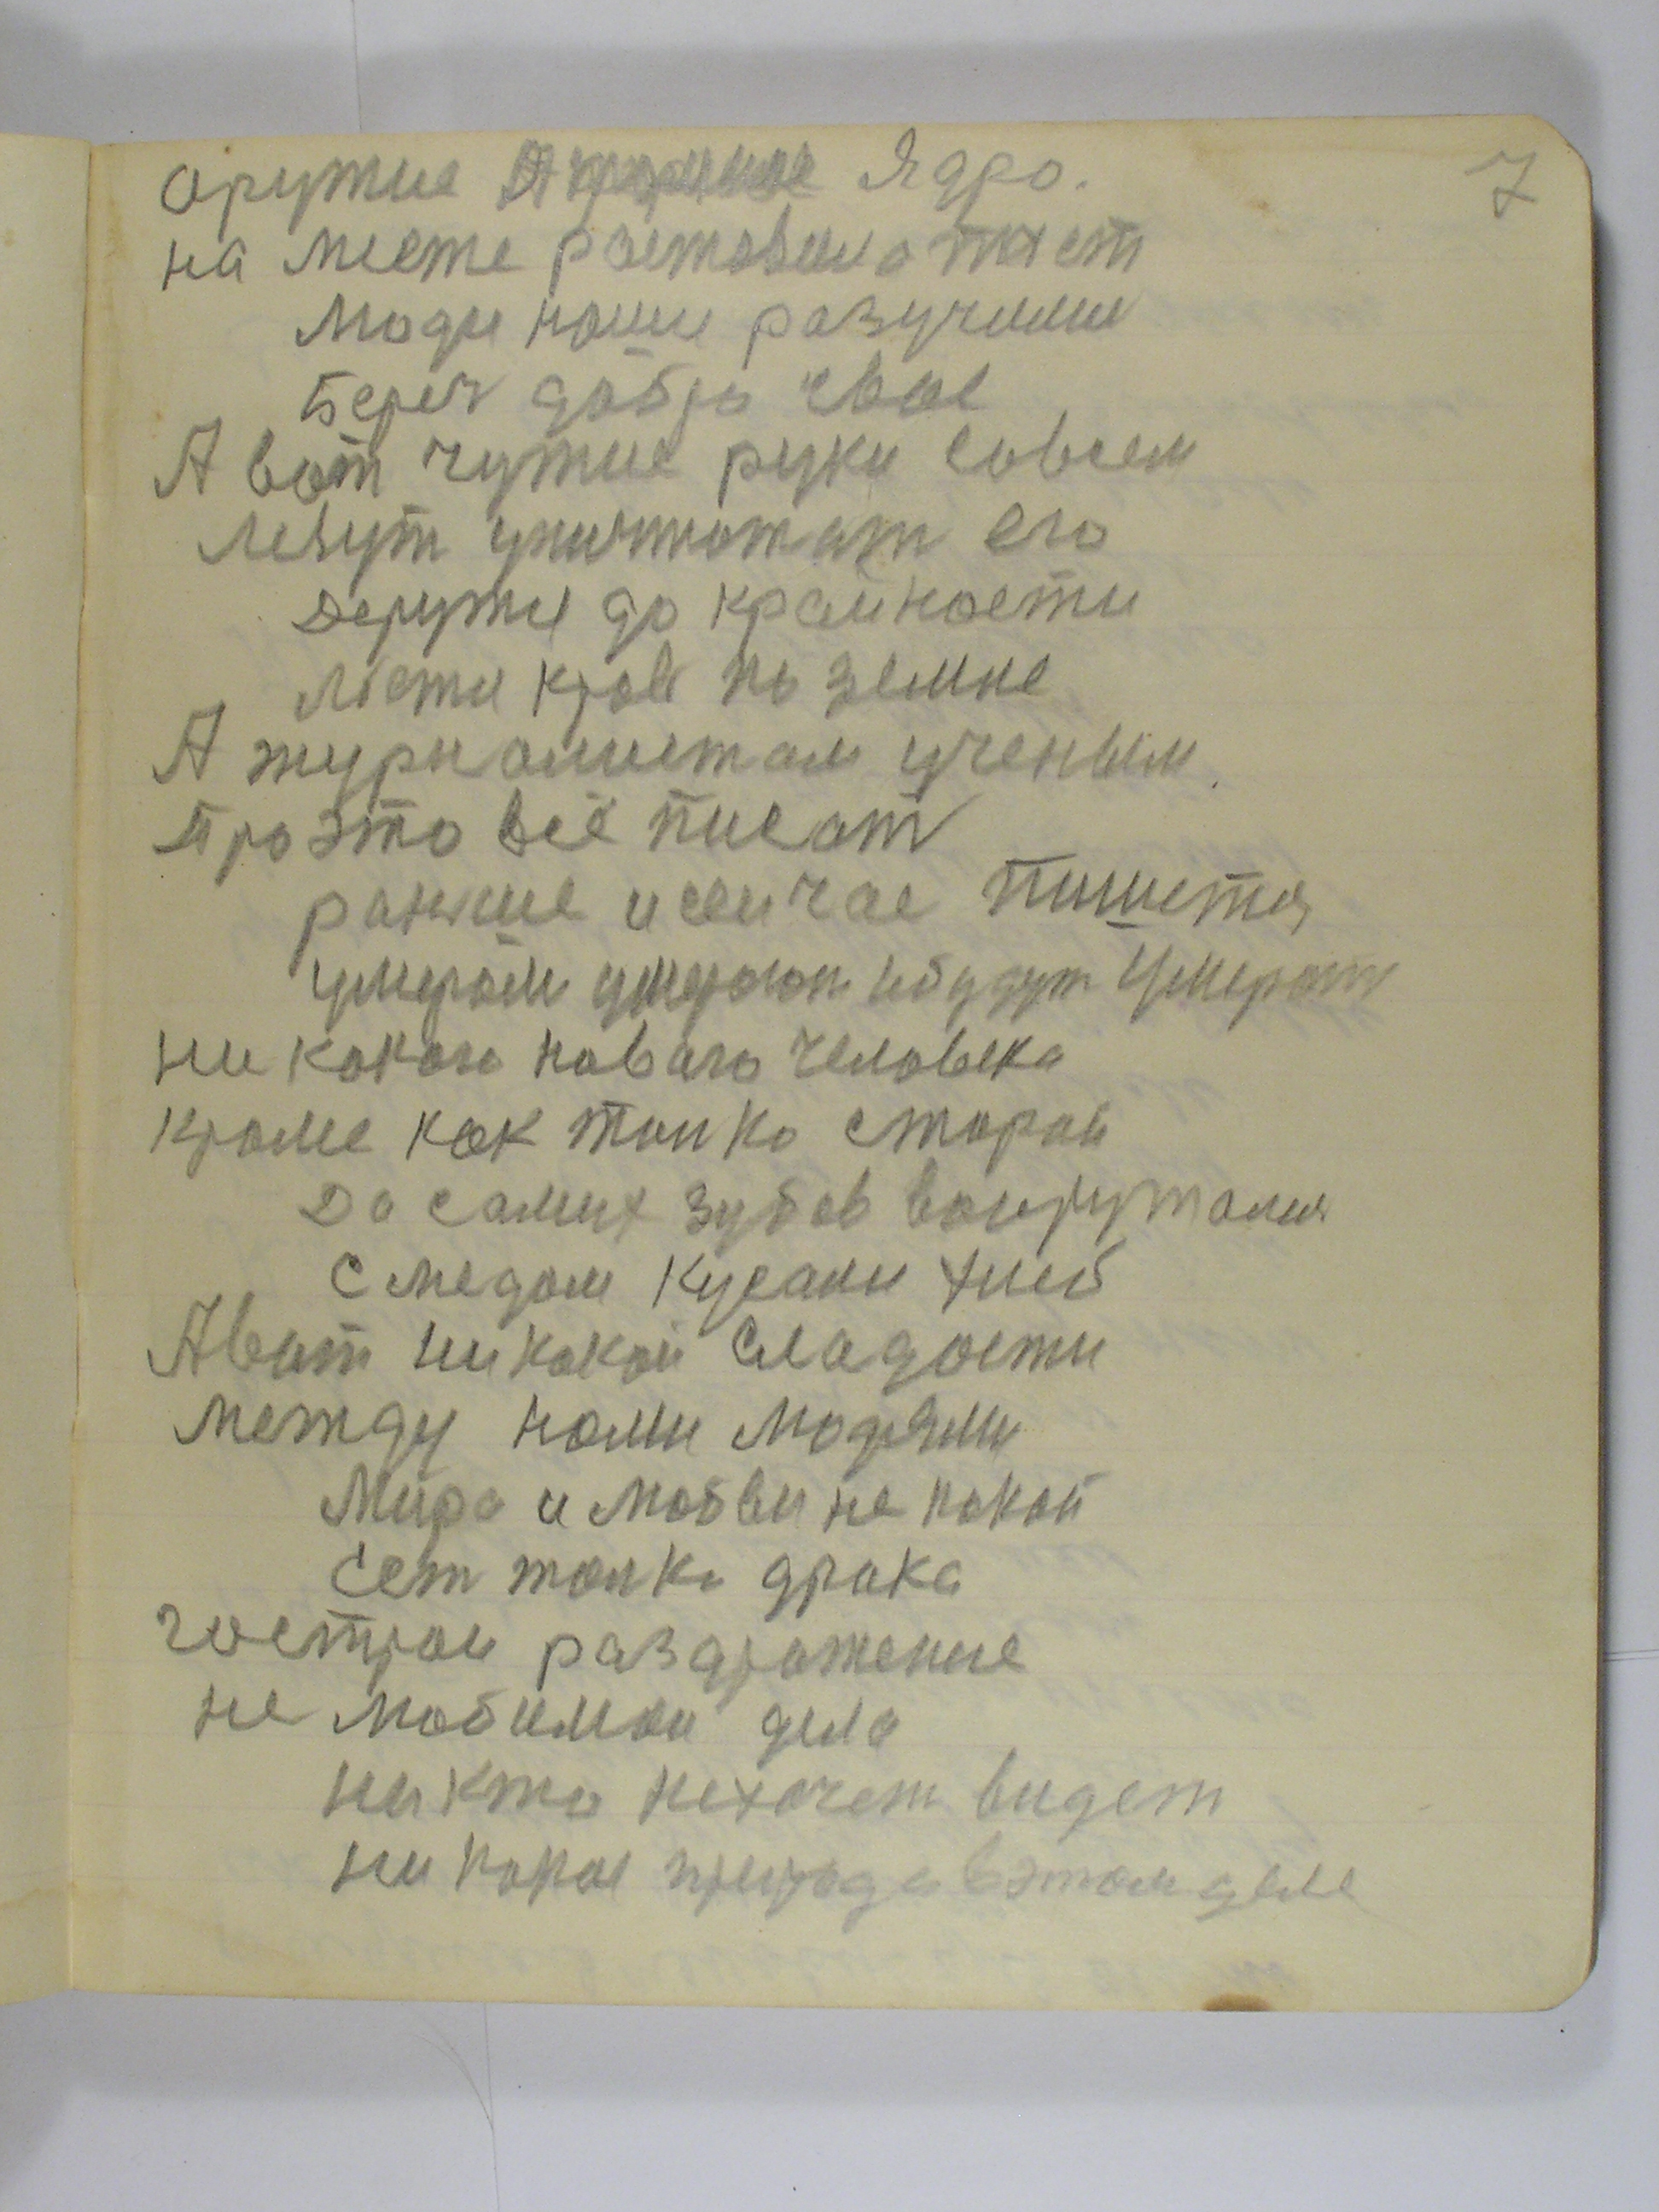 7
Оружие Ядро.
на месте
Люди наши разучили
Береч добро свое
А вот чужие руки совсем
Лезут уничтожат его
до крайности
кров по земле
А журналистам ученым.
Про это всё писат
раньше и сеичас пишется
умерали умерают и будут Умерат
ни какого новаго человека
кроме как толко старой
До самих зубов вооружалися
С медом кусали хлеб
А вот ни какой Сладости
между нами людями
Мира и любви не какой
Сет толко драка
раздражение
не любимои дела
ни кто не хочет видет
ни какое в этом деле